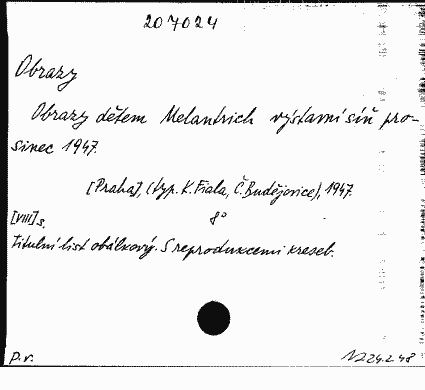 207024
Obrazy
Obrazy dětem Melantrich výstavní síň pro-
sinec 1947.
[Praha], (typ. K. Fiala, Č. Budějovice), 1947.
[VIII] s. 8°
Titulní list obálkový. S reprodukcemi kreseb.
p.v. 24.2.48